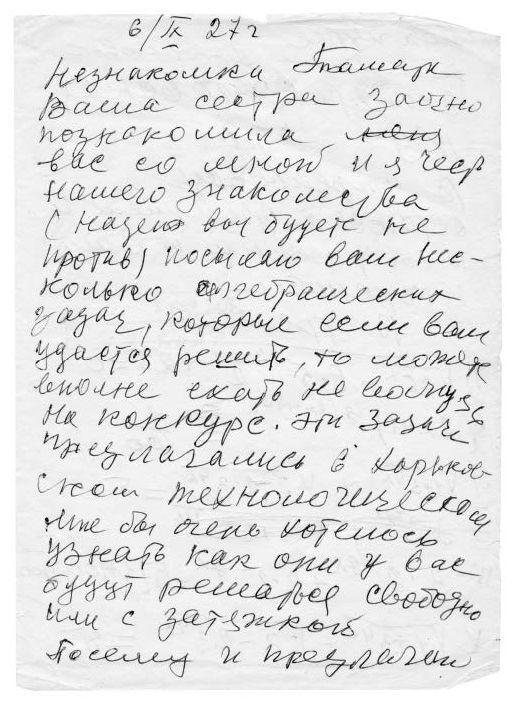 6/IX 27 г
Незнакомка Тамара
Ваша сестра заочно
познакомила меня
вас со мной и я честь
нашего знакомства
(надеюсь вы будете не
против) посылаю вам нес-
колько алгебраических
задач, которые если вам
удастся решить, то можете
вполне ехать не боясь
на конкурс. Эти задачи
предлагались в Харьков-
ском технологическом
Мне бы очень хотелось
узнать как они у вас
будут решаться свободно
или с затяжкой
Посему и предлагаю